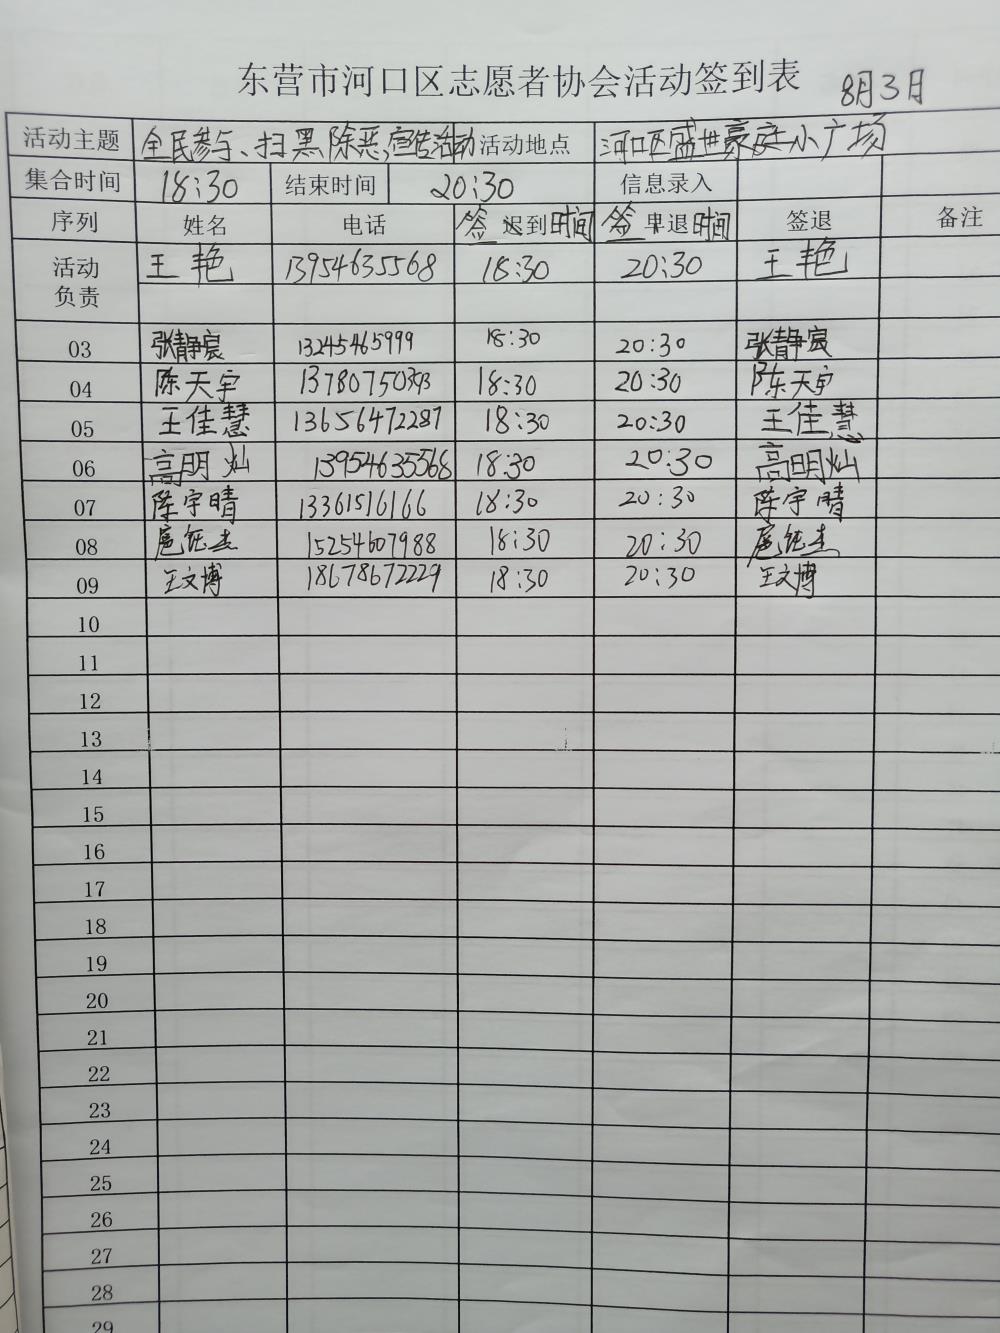 东营市河口区志愿者协会活动签到表 8月3日
活动主题 全民参与、扫黑除恶,宣传活动 活动地点 河口区盛世豪庭小广场
集合时间 18:30 结束时间 20:30 信息录入
序列 姓名 电话 签 迟到时间 签 早退时间 签退 备注
活动负责 王艳 13954635568 18:30 20:30 王艳
03 张静宸 13245465999 18:30 20:30 张静宸
04 陈天宇 18:30 20:30 陈天宇
05 王佳慧 13656472287 18:30 20:30 王佳慧
06 高明灿 13954635568 18:30 20:30 高明灿
07 陈宇晴 13361516166 18:30 20:30 陈宇晴
08 15254607988 18:30 20:30
09 王文博 18678672229 18:30 20:30 王文博
10
11
12
13
14
15
16
17
18
19
20
21
22
23
24
25
26
27
28
29